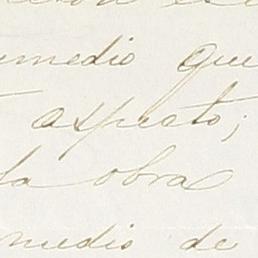 medio que
aspecto;
la obra
medio de